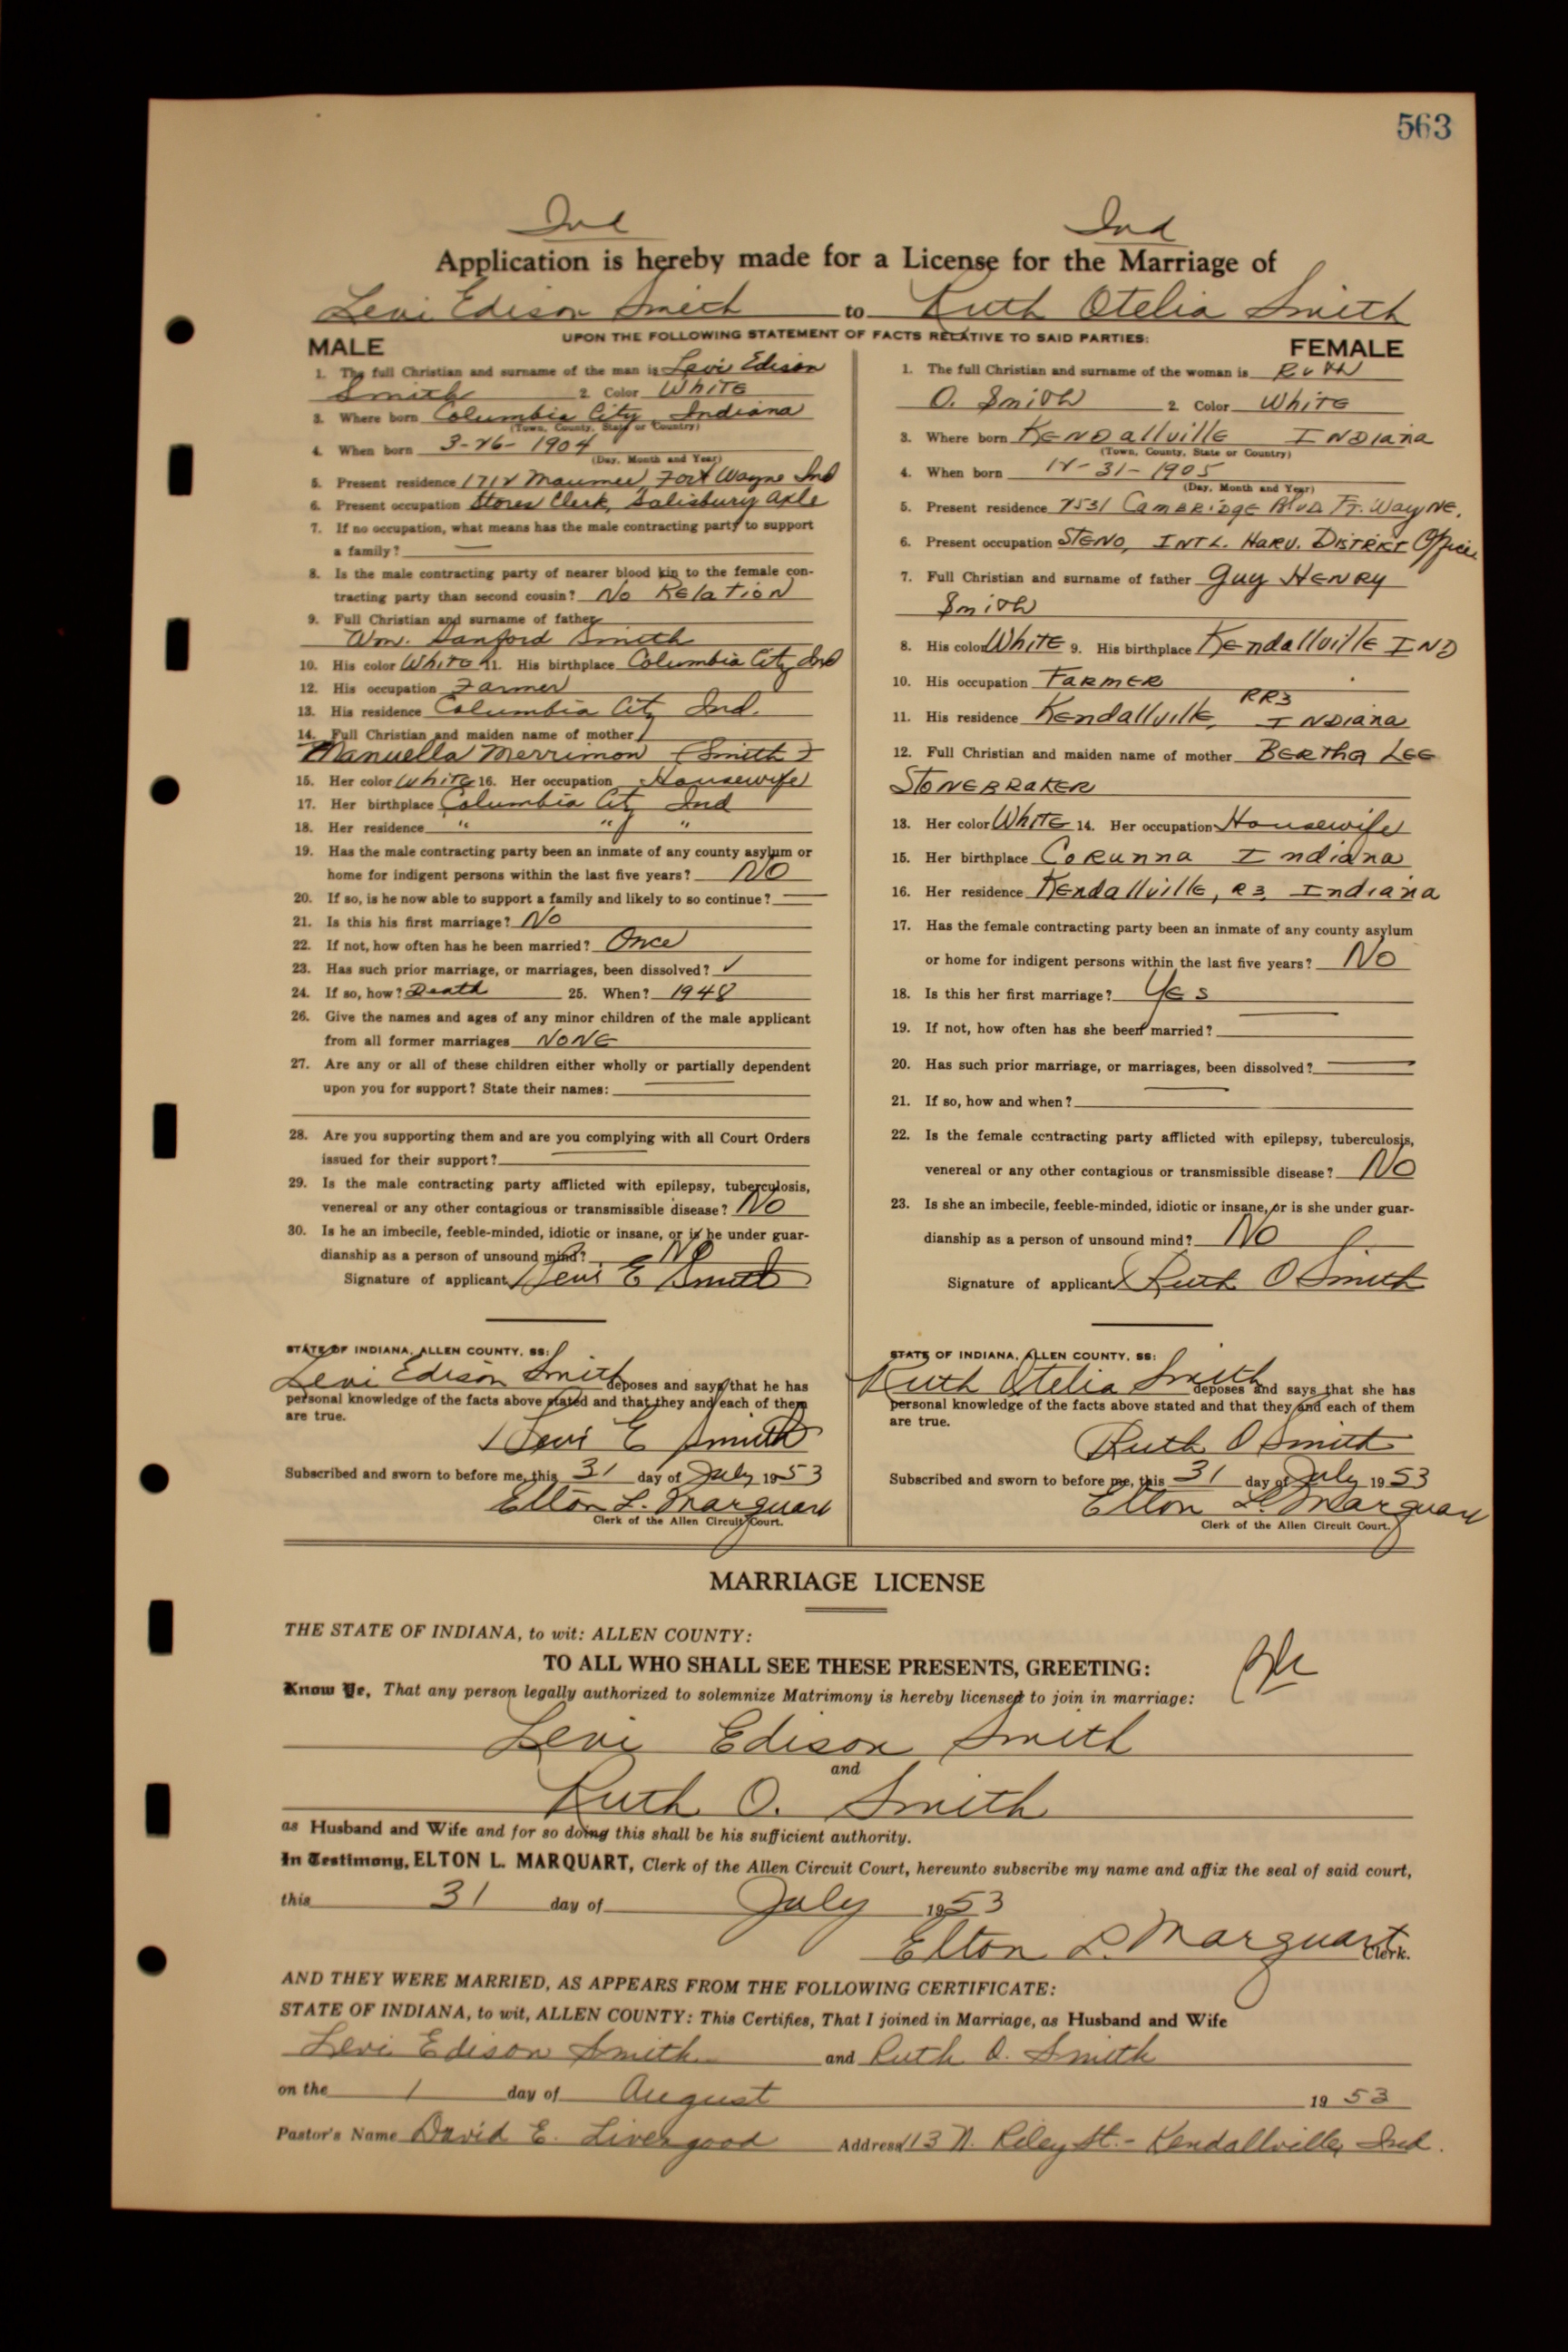 563
Ind Ind
Application is hereby made for a License for the Marriage of
Levi Edison Smith to Ruth Otelia Smith
UPON THE FOLLOWING STATEMENT OF FACTS RELATIVE TO SAID PARTIES:
MALE
1. The full Christian and surname of the man is Levi Edison
Smith 2. Color White
3. Where born Columbia City, Indiana
(Town, County, State or Country)
4. When born 3-26-1904
(Day, Month and Year)
5. Present residence 1712 Maumee, Fort Wayne Ind
6. Present occupation Stores Clerk, Salisbury Axle
7. If no occupation, what means has the male contracting party to support
a family?
8. Is the male contracting party of nearer blood kin to the female con-
tracting party than second cousin? No Relation
9. Full Christian and surname of father
Wm. Sanford Smith
10. His color White 11. His birthplace Columbia City Ind
12. His occupation Farmer
13. His residence Columbia City Ind.
14. Full Christian and maiden name of mother
Manuella Merrimon (Smith)
15. Her color White 16. Her occupation Housewife
17. Her birthplace Columbia City Ind
18. Her residence " " "
19. Has the male contracting party been an inmate of any county asylum or
home for indigent persons within the last five years? No
20. If so, is he now able to support a family and likely to so continue?
21. Is this his first marriage? No
22. If not, how often has he been married? Once
23. Has such prior marriage, or marriages, been dissolved? ✓
24. If so, how? Death 25. When? 1948
26. Give the names and ages of any minor children of the male applicant
from all former marriages NONE
27. Are any or all of these children either wholly or partially dependent
upon you for support? State their names:
28. Are you supporting them and are you complying with all Court Orders
issued for their support?
29. Is the male contracting party afflicted with epilepsy, tuberculosis,
venereal or any other contagious or transmissible disease? No
30. Is he an imbecile, feeble-minded, idiotic or insane, or is he under guar-
dianship as a person of unsound mind? No
Signature of applicant Levi E Smith
STATE OF INDIANA, ALLEN COUNTY, SS:
Levi Edison Smith deposes and says that he has
personal knowledge of the facts above stated and that they and each of them
are true.
Levi E Smith
Subscribed and sworn to before me, this 31 day of July 1953
Elton L. Marquart
Clerk of the Allen Circuit Court.
FEMALE
1. The full Christian and surname of the woman is Ruth
O. Smith 2. Color White
3. Where born Kendallville Indiana
(Town, County, State or Country)
4. When born 12-31-1905
(Day, Month and Year)
5. Present residence 2531 Cambridge Blvd Ft. Wayne.
6. Present occupation Steno, Intl. Harv. District Office
7. Full Christian and surname of father Guy Henry
Smith
8. His color White 9. His birthplace Kendallville IND
10. His occupation Farmer
RR3
11. His residence Kendallville, Indiana
12. Full Christian and maiden name of mother Bertha Lee
Stonebraker
13. Her color White 14. Her occupation Housewife
15. Her birthplace Corunna Indiana
16. Her residence Kendallville, R3, Indiana
17. Has the female contracting party been an inmate of any county asylum
or home for indigent persons within the last five years? No
18. Is this her first marriage? Yes
19. If not, how often has she been married?
20. Has such prior marriage, or marriages, been dissolved?
21. If so, how and when?
22. Is the female contracting party afflicted with epilepsy, tuberculosis,
venereal or any other contagious or transmissible disease? No
23. Is she an imbecile, feeble-minded, idiotic or insane, or is she under guar-
dianship as a person of unsound mind? No
Signature of applicant Ruth O Smith
STATE OF INDIANA, ALLEN COUNTY, SS:
Ruth Otelia Smith deposes and says that she has
personal knowledge of the facts above stated and that they and each of them
are true.
Ruth O Smith
Subscribed and sworn to before me, this 31 day of July 1953
Elton L. Marquart
Clerk of the Allen Circuit Court.
MARRIAGE LICENSE
THE STATE OF INDIANA, to wit: ALLEN COUNTY:
TO ALL WHO SHALL SEE THESE PRESENTS, GREETING:
Know Ye, That any person legally authorized to solemnize Matrimony is hereby licensed to join in marriage:
Levi Edison Smith
and
Ruth O. Smith
as Husband and Wife and for so doing this shall be his sufficient authority.
In Testimony, ELTON L. MARQUART, Clerk of the Allen Circuit Court, hereunto subscribe my name and affix the seal of said court,
this 31 day of July 1953
Elton L. Marquart Clerk.
AND THEY WERE MARRIED, AS APPEARS FROM THE FOLLOWING CERTIFICATE:
STATE OF INDIANA, to wit, ALLEN COUNTY: This Certifies, That I joined in Marriage, as Husband and Wife
Levi Edison Smith and Ruth O. Smith
on the 1 day of August 1953
Pastor's Name David E. Livengood Address 113 N. Riley St. - Kendallville, Ind.